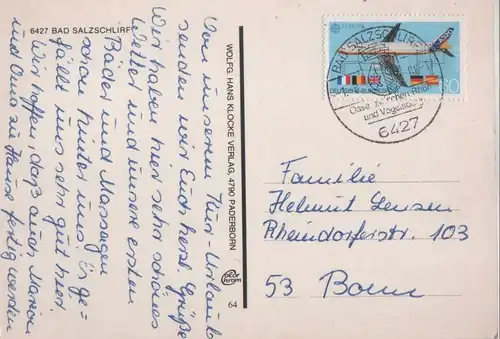 6427 BAD SALZSCHLIRF
Von unserem Kur-Urlaub
senden wir Euch herzl. Grüße
Wir haben hier sehr schönes
Wetter und unsere ersten
Bäder und Massagen
schon hinter uns. Es ge-
fällt uns sehr gut hier
Wir hoffen, daß auch Marion
und Oma zu Hause fertig werden
WOLFG. HANS KLOCKE VERLAG, 4790 PADERBORN
color chrom
64
EUROPA
BAD SALZSCHLIRF
Oase zwischen Rhön
und Vogelsberg
6427
Familie
Helmut Jensen
Rheindorferstr. 103
53 Bonn